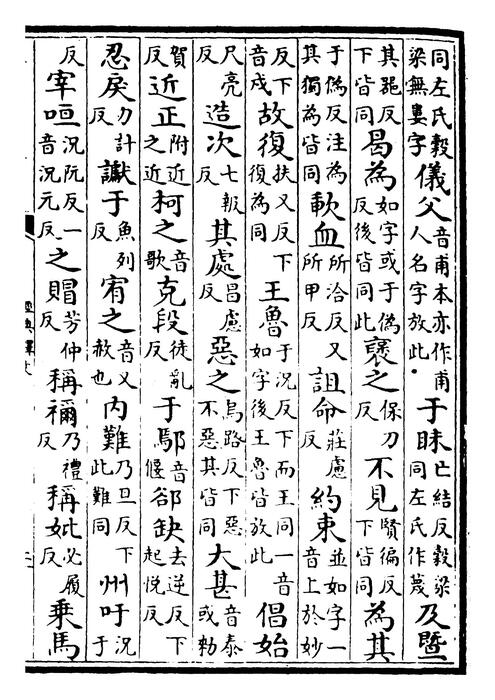 同左氏榖梁無婁字儀父音甫本亦作甫人名字放此于眛亡結反榖梁同左氏作蔑及暨
其器反下皆同曷為如字或于偽反後皆同此襃之保刀反不見賢徧反下皆同為其
于偽反注為其獨為皆同軟血所洽反又所甲反詛命莊慮反約束並如字一音上於妙
反下音戍故復扶又反下復為同王魯于況反下而王同一音如字後王魯皆放此倡始
尺亮反造次七報反其處昌慮反惡之烏路反下惡不惡其皆同大甚音泰或勑
賀反近正附近之近柯之音歌克段徒亂反于鄢音偃郤缺去逆反下起悅反
忍戾力計反讞于魚列反宥之音又赦也內難乃旦反下此難同州吁況于
反宰咺況阮反一音況元反之賵芳仲反稱禰乃禮反稱妣必履反乗馬